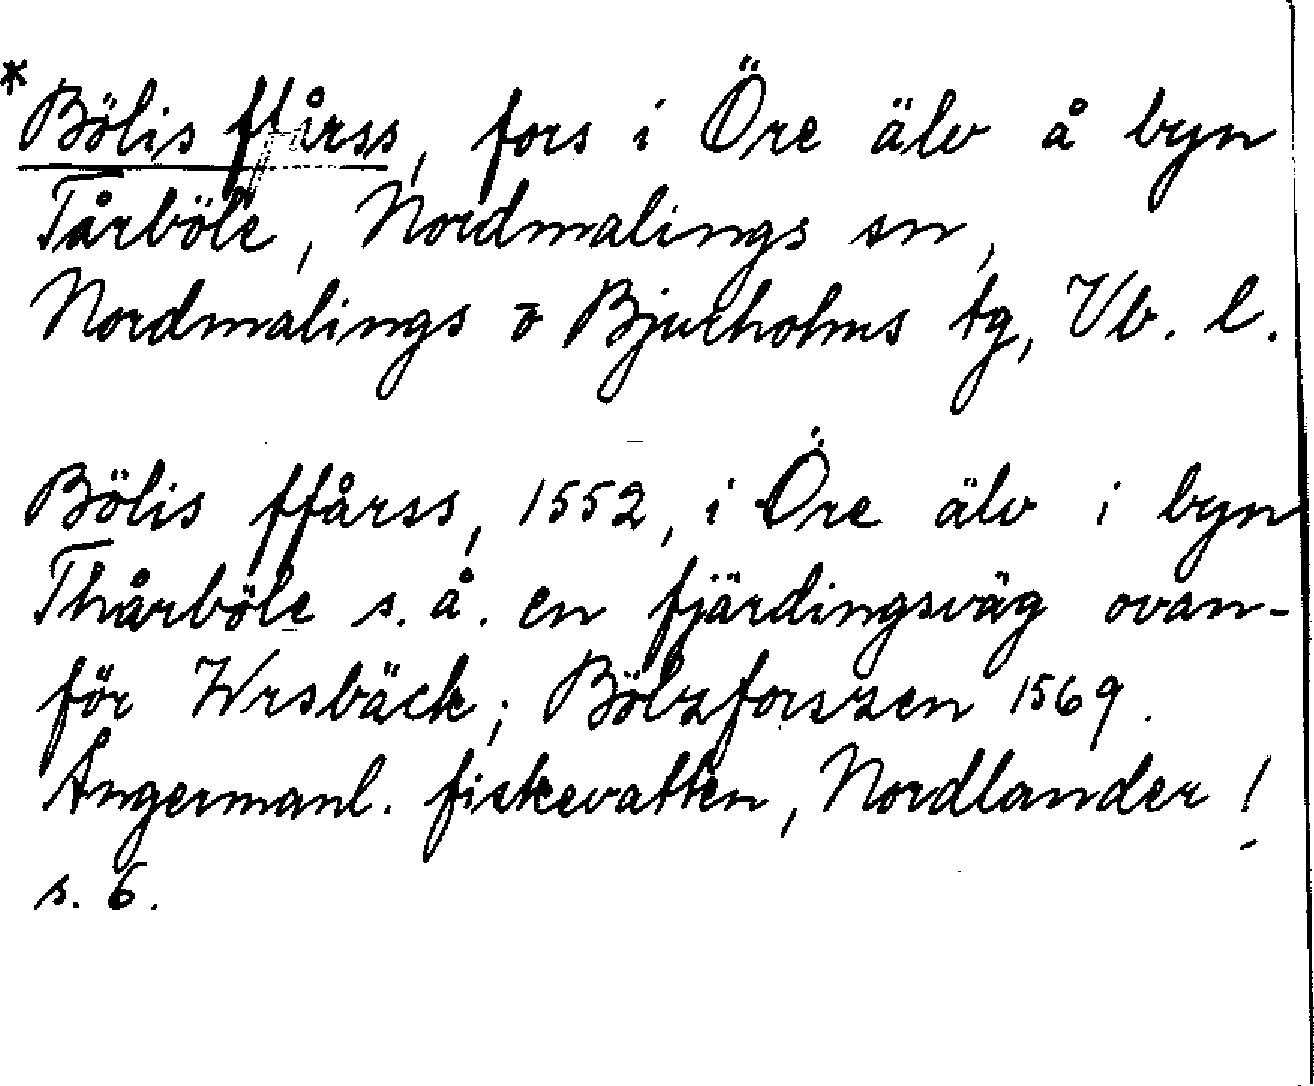 *Bölis ffårss, fors i Öre älv å byn
Tårböle, Nordmalings sn,
Nordmalings o Bjurholms tg, Vb. l.
Bölis ffårss, 1552, i Öre älv i byn
Thårböle s. å. en fjärdingsväg ovan-
för Wrsbäck; Bölzforszen 1569.
Ångermanl. fiskevatten, Nordlander!
s. 6.